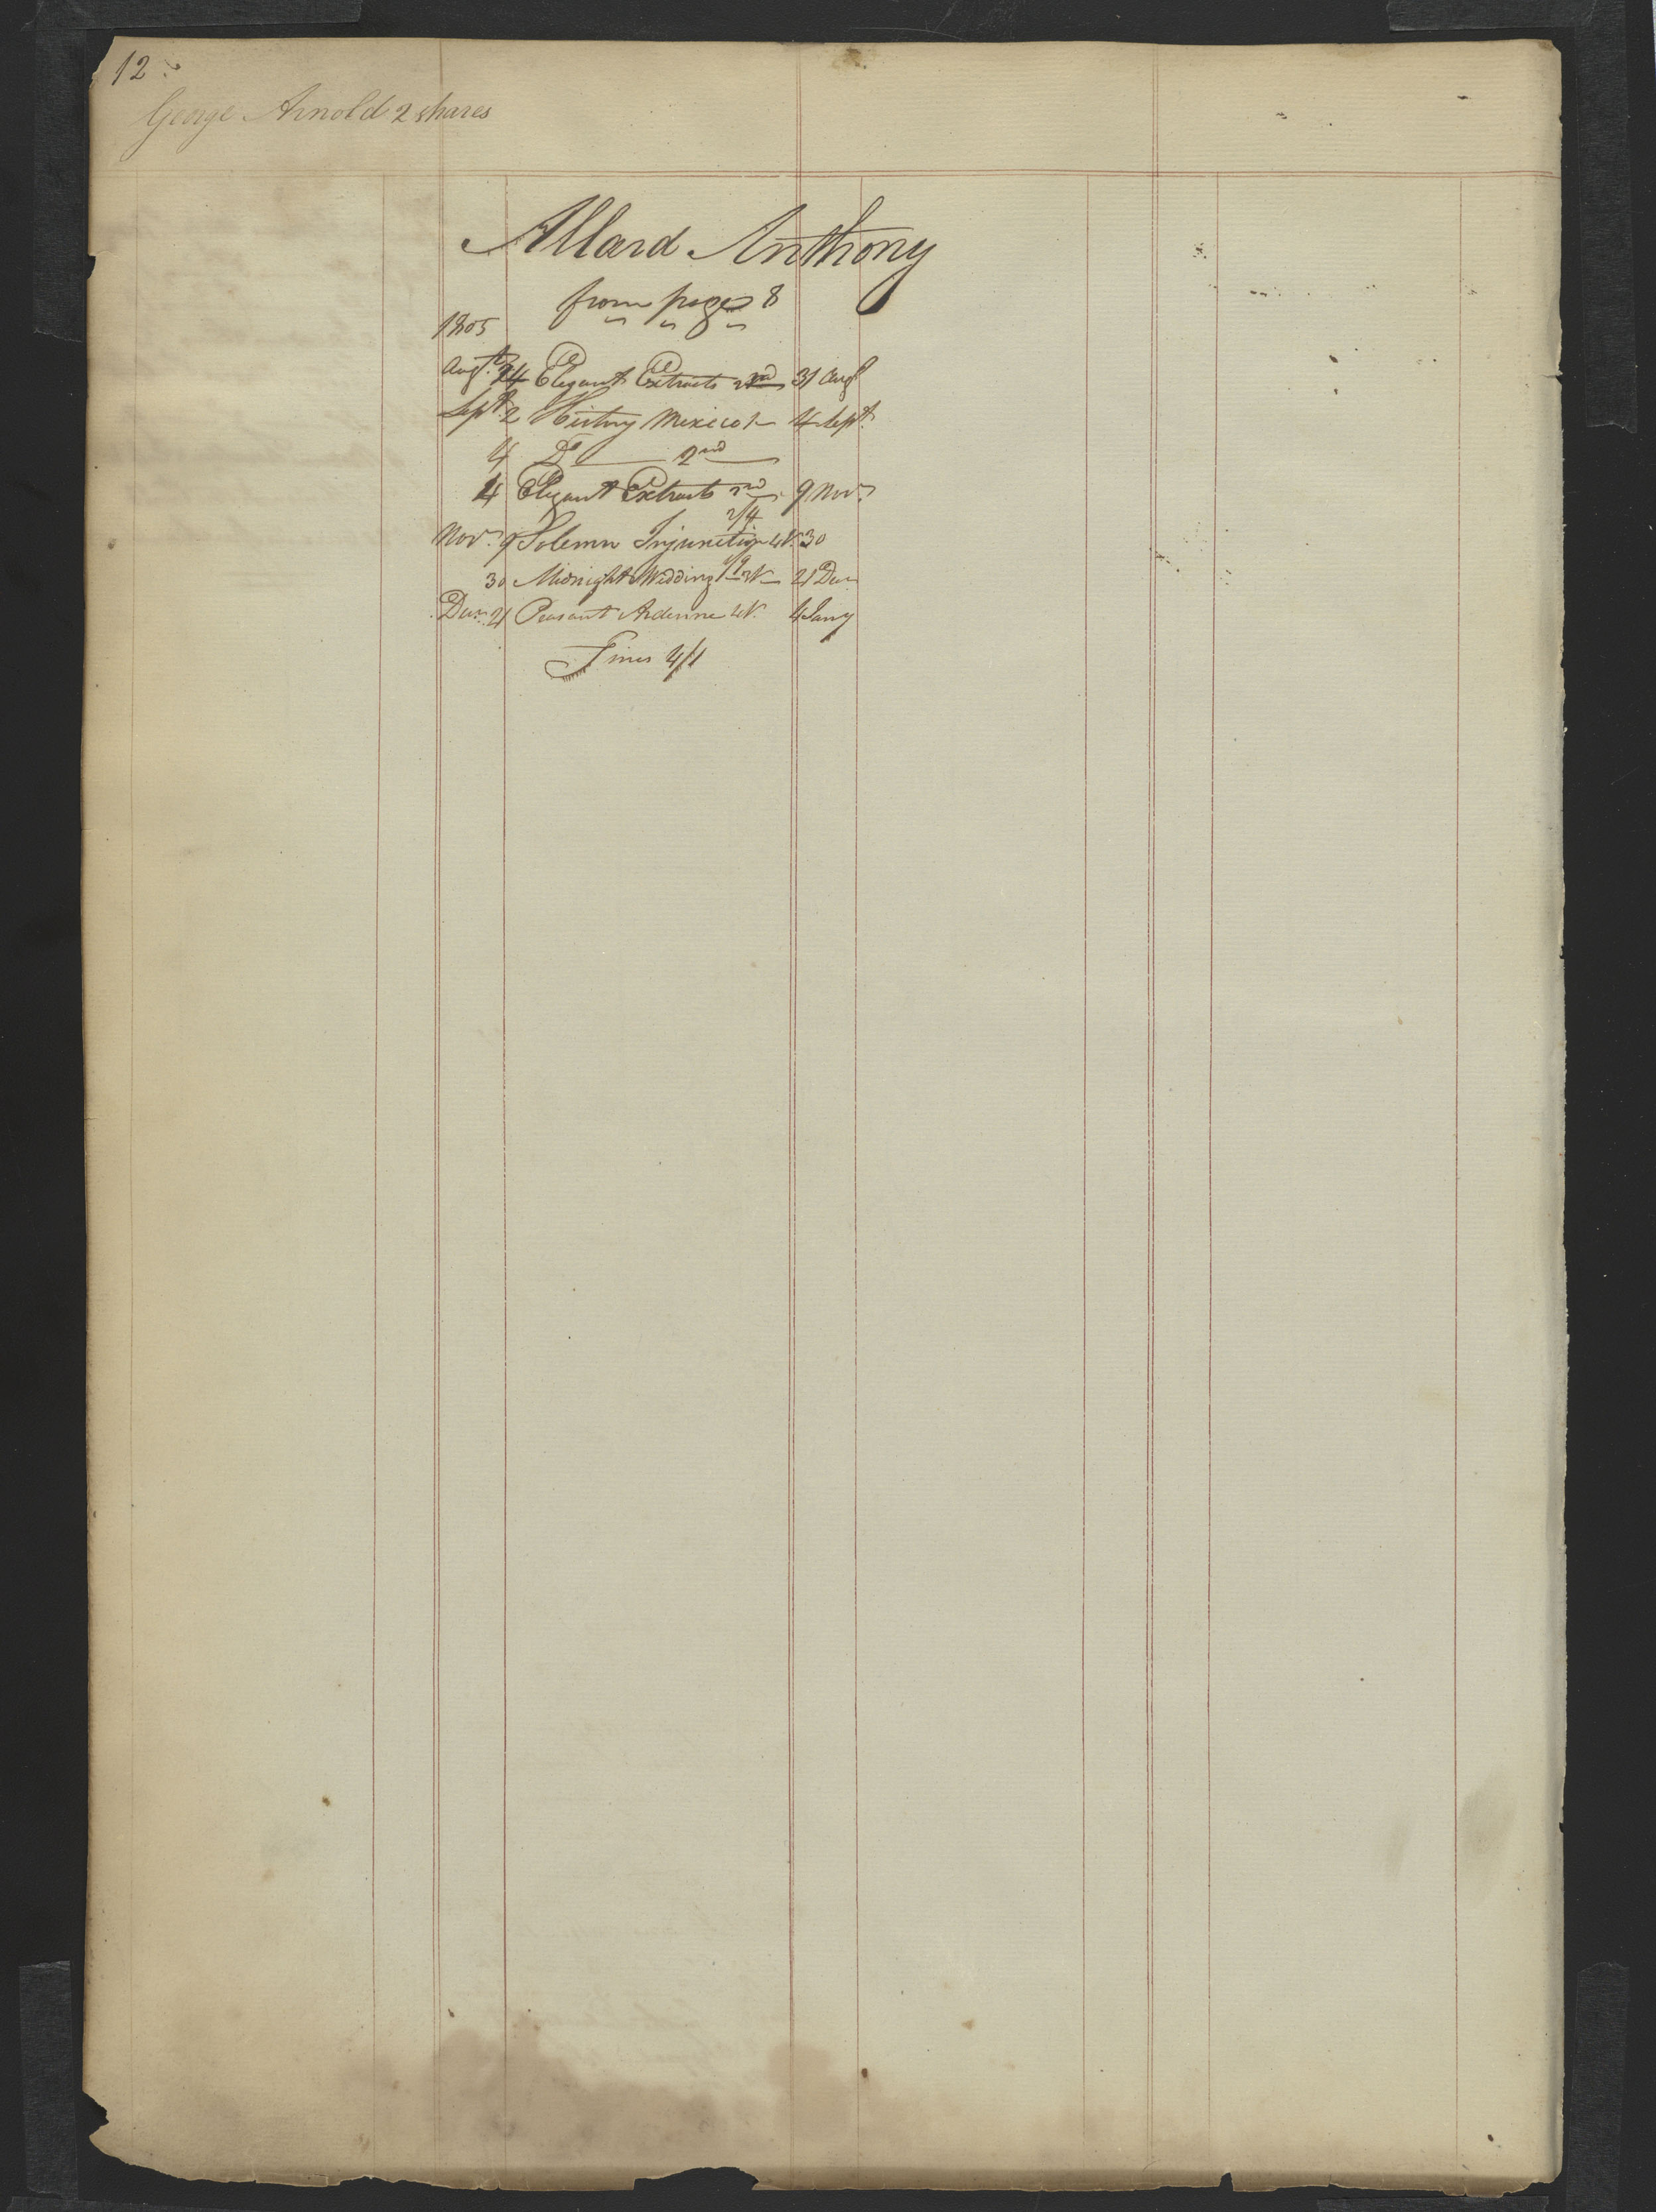 12
George Arnold 2 shares
Allard Anthony
from page 8
1805
Augt. 24 Elegant Extracts 2nd 31 Augt
Sept. 2 History Mexico 1 4 Sept.
4 Do 2nd
4 Elegant Extracts 2nd 9 Nov.
2/4
Nov. 9 Solemn Injunction 4V. 30
1/9
30 Midnight Wedding 2V 21 Decr
Decr. 21 Peasant Ardenne 4V. 4 Jany
Fines 4/1